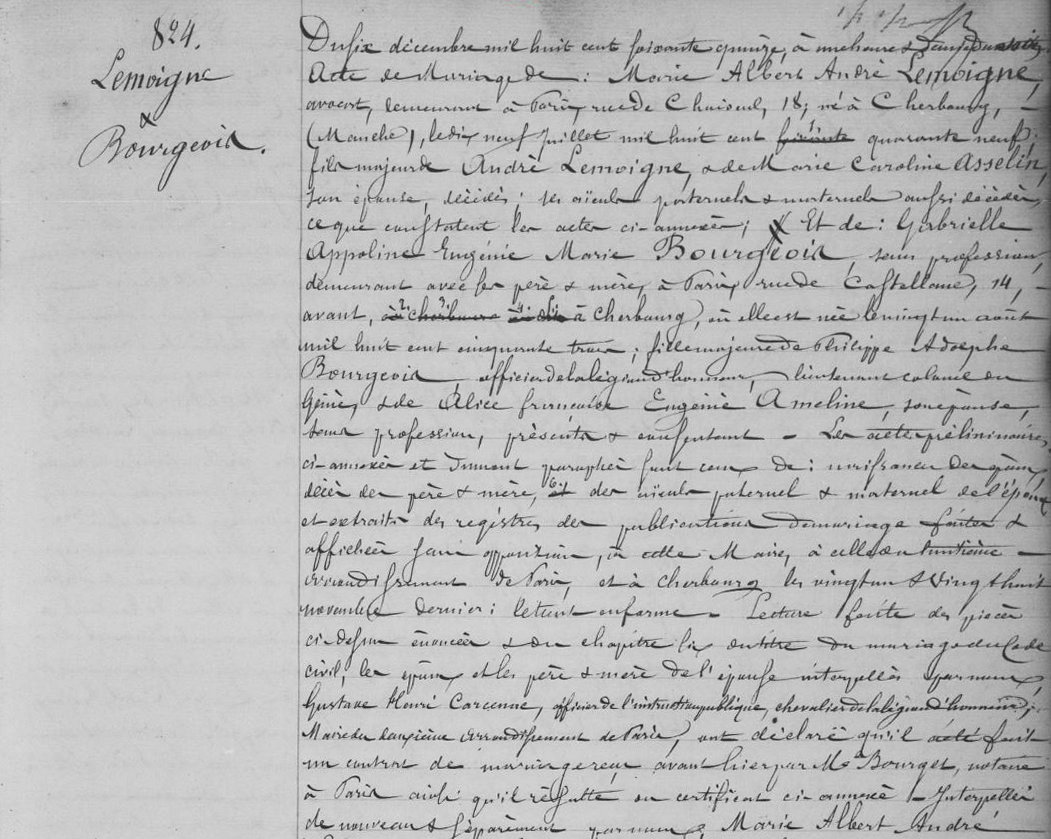 824.
Lemoigne
&
Bourgeois.
Du six décembre mil huit cent soixante quinze, à une heure & demie du soir,
Acte de Mariage de : Marie Albert André Lemoigne,
avocat, demeurant à Paris, rue de Choiseul, 18 ; né à Cherbourg, –
(Manche), le dix neuf juillet mil huit cent soixante quarante neuf ;
fils majeur de André Lemoigne, & de Marie Caroline Asselin,
son épouse, décédés ; ses aïeuls paternels & maternels aussi décédés,
ce que constatent les actes ci-annexés ; // Et de : Gabrielle
Appoline Eugénie Marie Bourgeois, sans profession,
demeurant avec ses père & mère, à Paris, rue de Castellane, 14, –
avant, à Cherbourg à Cherbourg, où elle est née le vingt un août
mil huit cent cinquante trois ; fille majeure de Philippe Adolphe
Bourgeois, officier de la légion d'honneur, lieutenant colonel du
Génie, & de Alice françoise Eugénie Ameline, son épouse,
sans profession, présents & consentant – Les actes préliminaires
ci-annexés et dument paraphés sont ceux de : naissance des époux,
décès des père & mère, et des aïeuls paternel & maternel de l'époux
et extraits des registres des publications de mariage faites &
affichées sans opposition, en cette Mairie, à celle du huitième –
arrondissement de Paris, et à Cherbourg les vingt un & vingt huit
novembre dernier ; le tout en forme – Lecture faite des pièces
ci-dessus énoncées & du chapitre six du titre du mariage du Code
civil, les époux et les père & mère de l'épouse interpellés par nous,
Gustave Henri Carcenac, officier de l'instruction publique, chevalier de la légion d'honneur,
Maire du deuxième arrondissement de Paris, ont déclaré qu'il a été fait
un contrat de mariage reçu avant hier par Me Bourget, notaire
à Paris ainsi qu'il résulte du certificat ci-annexé – Interpellés
de nouveau & séparément par nous, Marie Albert André